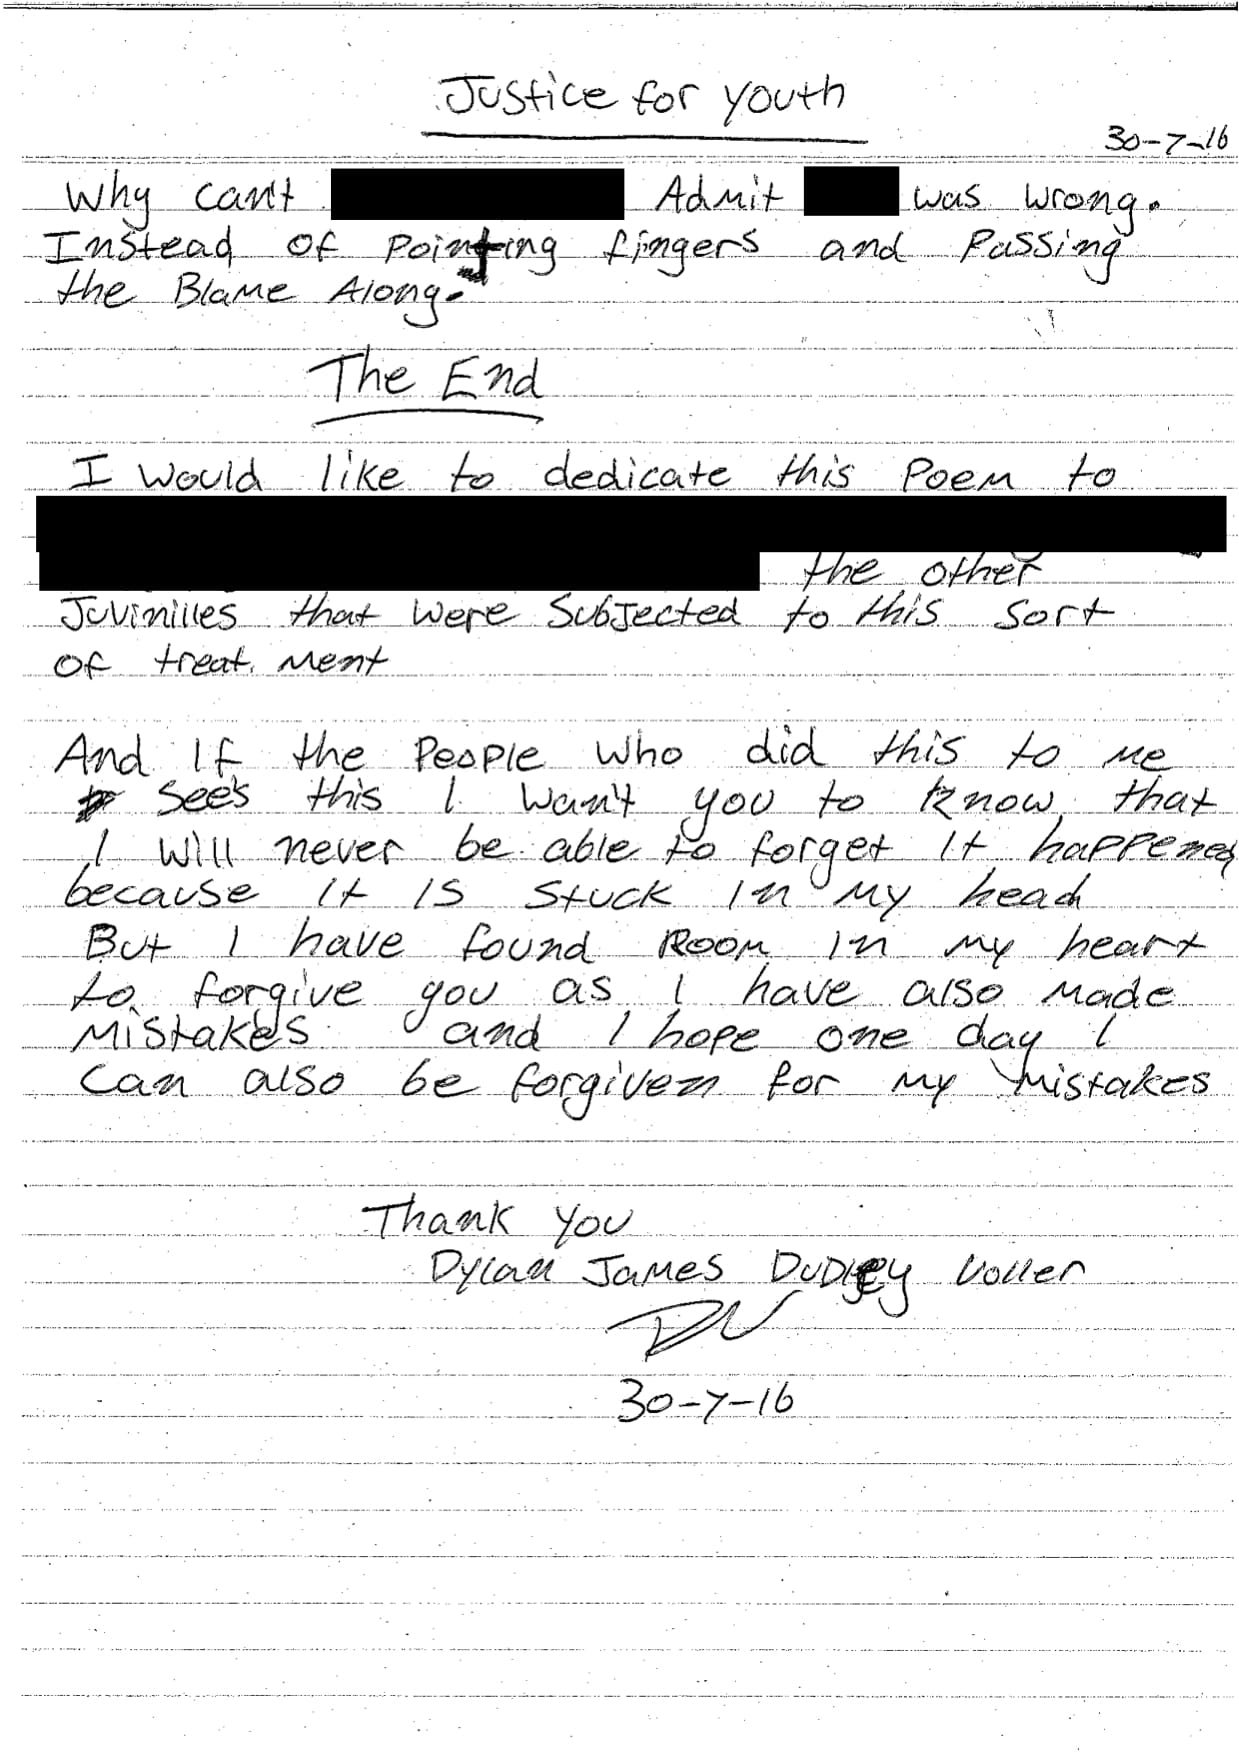 Justice for youth
30-7-16
Why can't Admit was wrong.
Instead of pointing fingers and Passing
the Blame Along.
The End
I would like to dedicate this Poem to
the other
Juvinilles that were Subjected to this sort
of treat ment
And If the People who did this to me
See's this I wan't you to know that
I will never be able to forget It happened
because It Is Stuck In my head
But I have found Room In my heart
to forgive you as I have also made
Mistakes and I hope one day I
can also be forgiven for my mistakes
Thank you
Dylan James Dudley Voller
DV
30-7-16